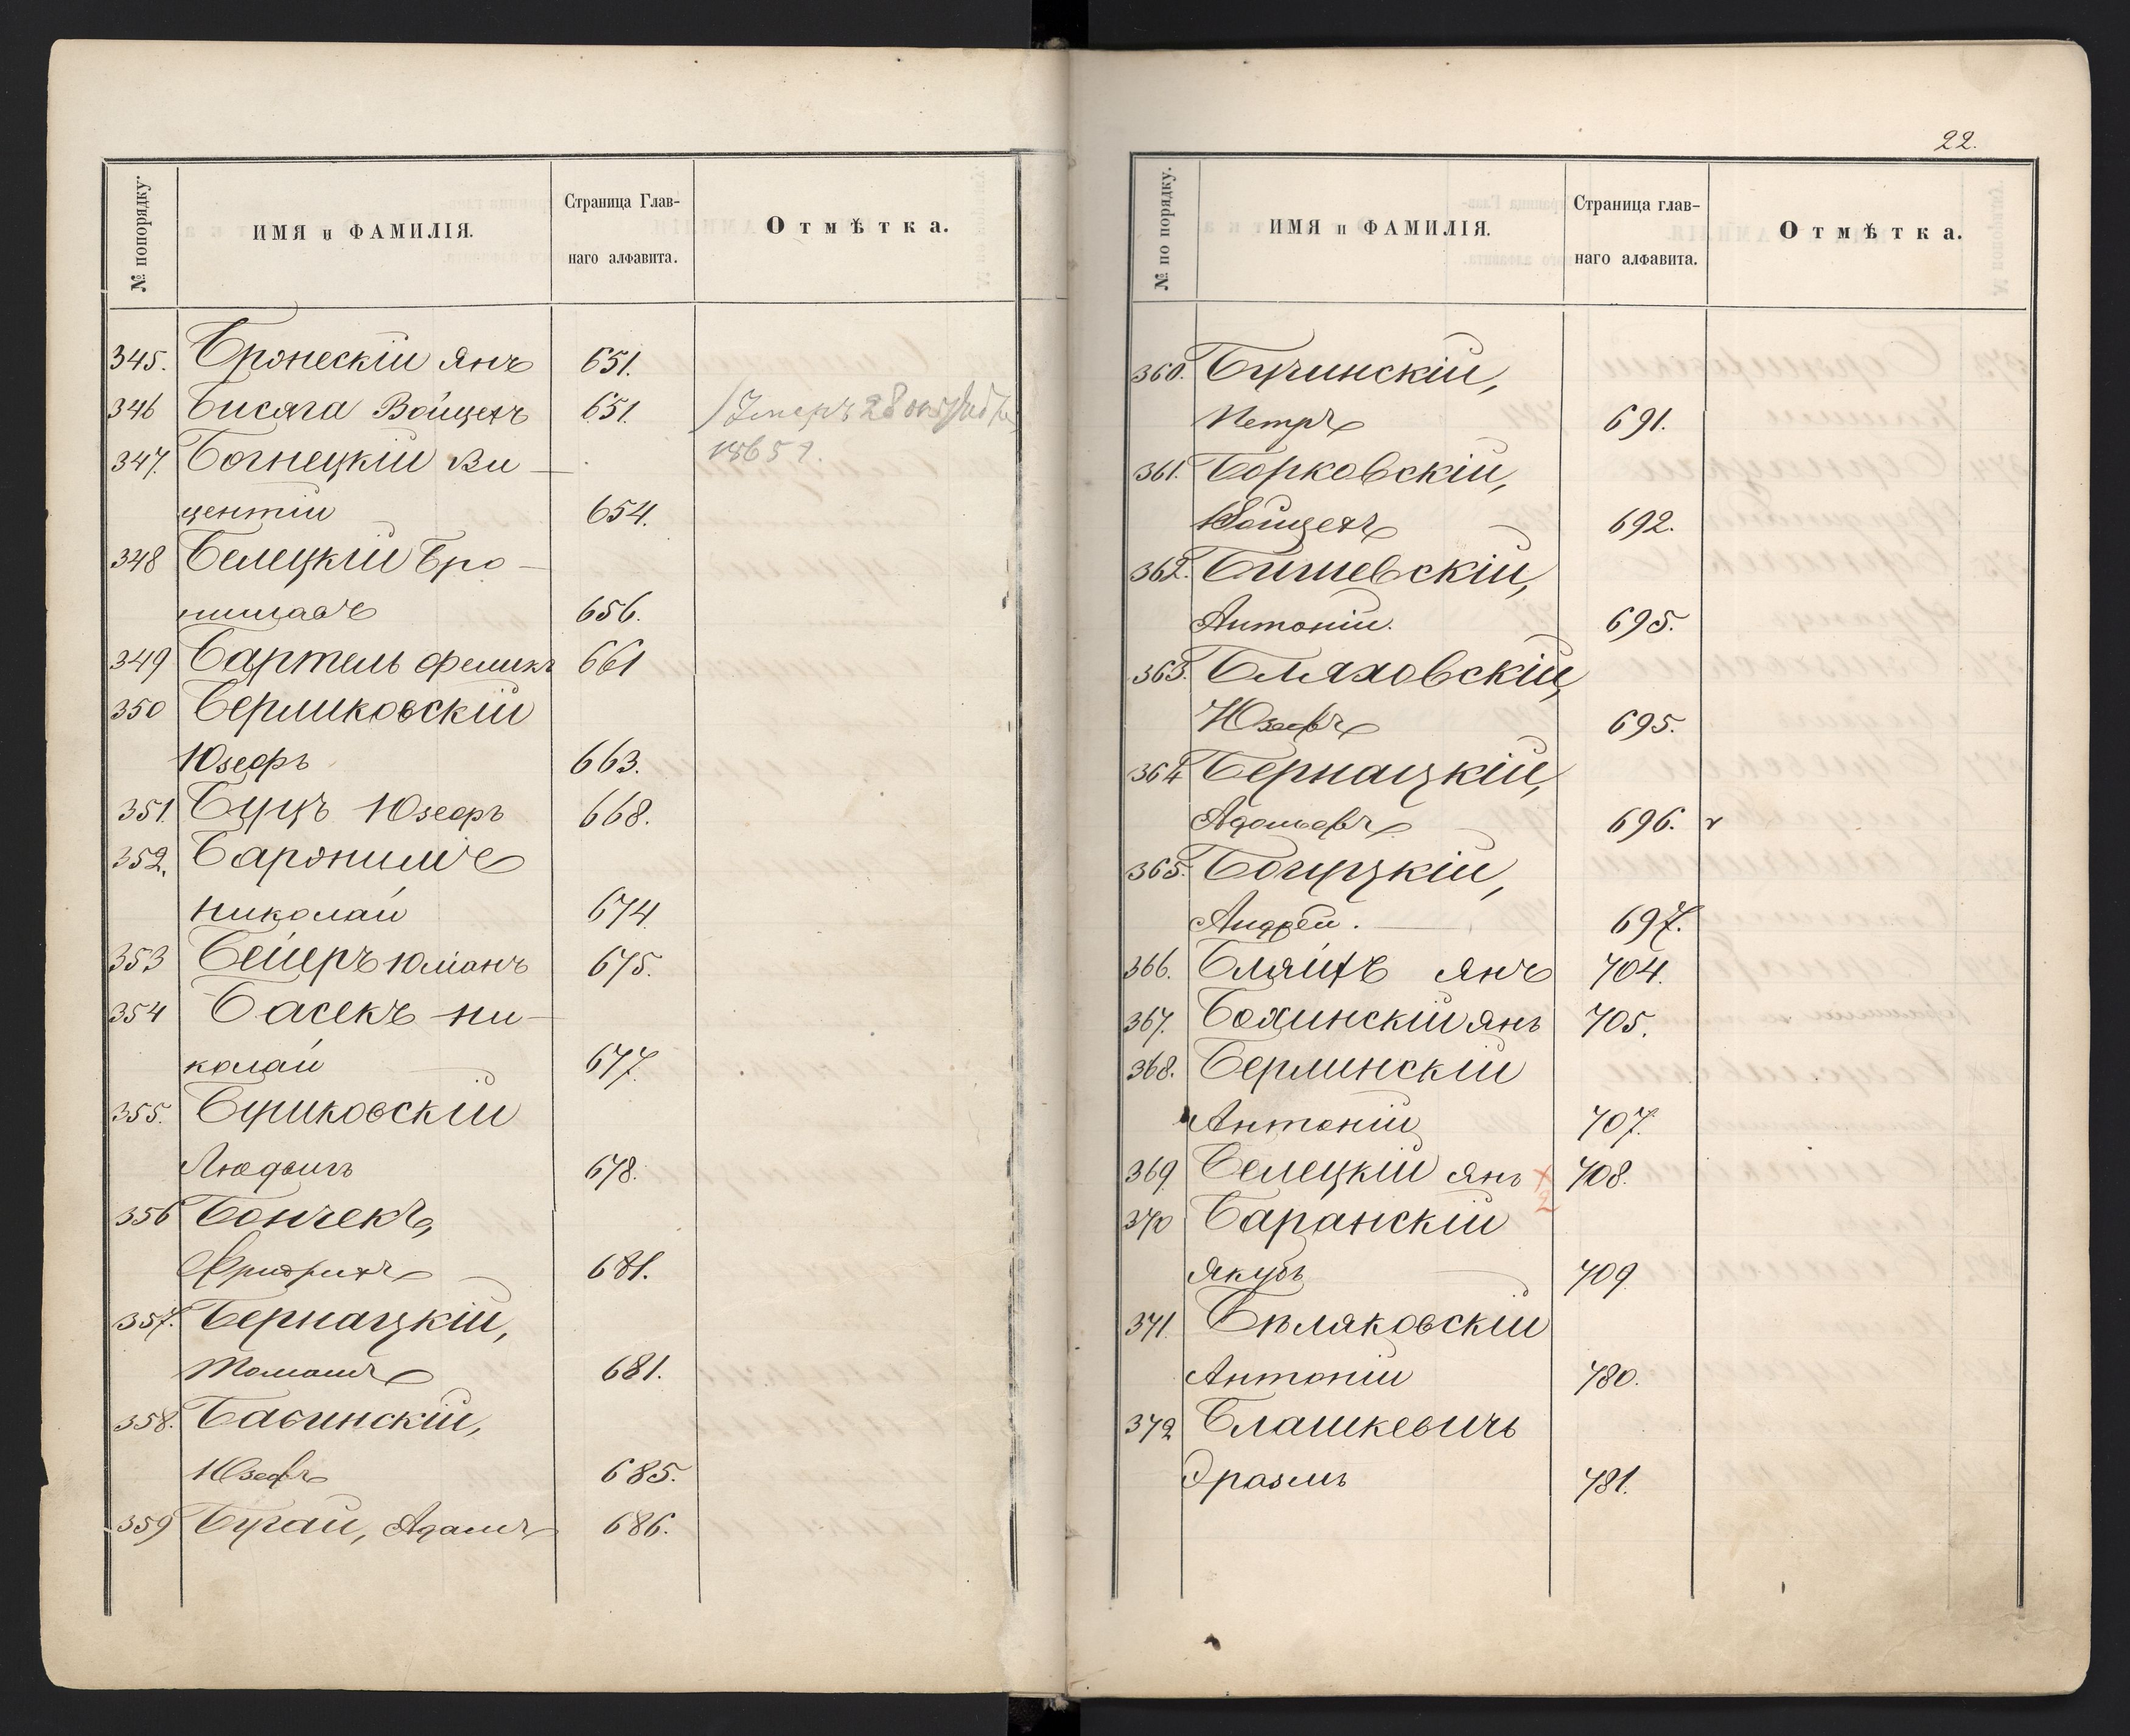 № попорядку.
ИМЯ и ФАМИЛІЯ.
Страница Глав-
наго алфавита.
Отмѣтка.
345. Бронескій Янъ 651.
346 Бисяга Войцехъ 651. Умеръ 28
347. Богнецкій Ви-
1865 г.
центій 654.
348 Белецкій Бро-
ниславъ 656.
349 Бартель Феликъ 661
350 Бермиковскій
Юзефъ 663.
351. Буцъ Юзефъ 668.
352. Баронишъ
Николай 674
353 Бейеръ Юліанъ 675.
354 Басекъ Ни-
колай 677.
355. Буриковскій
Людвигъ 678.
356 Бончекъ,
Фридрихъ 681.
357. Бернацкій,
Томашъ 681.
358. Бабинскій,
Юзефъ 685.
359 Бугай, Адамъ 686.
22.
№ по порядку.
ИМЯ и ФАМИЛІЯ.
Страница глав-
наго алфавита.
Отмѣтка.
360. Бучинскій,
Петръ 691.
361. Борковскій,
Войцехъ 692.
362. Бишевскій,
Антоній. 695.
363. Бляховскій,
Юзефъ 695.
364 Бернацкій,
Адольфъ 696. v
365. Богуцкій,
Андрей. 697.
366. Бляйхъ Янъ 704.
367. Бохинскій Янъ 705.
368. Берлинскій
Антоній 707.
369 Белецкій Янъ + 708.
2
370 Баранскій
Якубъ 709
371. Бѣляковскій
Антоній 780.
372 Блашкевичъ
Эразмъ 781.